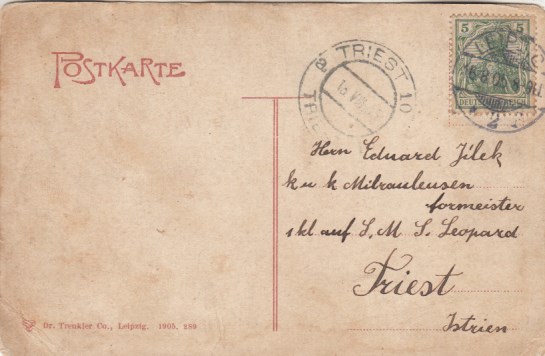 POSTKARTE
TRIEST 10
5 5
DEUTSCHES REICH
LEIPZIG
2
Herrn Eduard Jílek
k u k Milrauleusen
formeister
1 kl auf S. M. S. Leopard
Triest
Istrien
Dr. Trenkler Co., Leipzig. 1905. 289